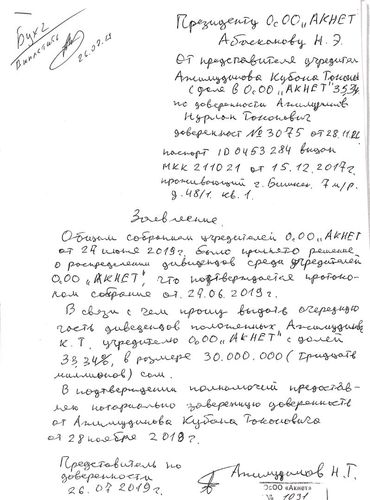 Бухг
Выплатить
26.07.19
Президенту ОсОО "АКНЕТ
Абасканову Н. Э.
От представителя учредителя
Ажимудинова Кубана Токоны
(доля в О.ОО "АКНЕТ" 33,34
по доверенности Ажимудинов
Нурлан Токонович
доверенност № 3075 от 28.11.
паспорт ID 0453284 выдан
МКК 211021 от 15.12.2017г.
проживающий г. Бишкек. 7 м/р.
д. 48/1. кв. 1.
Заявление.
Общим собранием учредителей О.ОО "АКНЕТ
от 29 июня 2019г. было принято решение
о распределении дивидендов среди учредителей
О.ОО "АКНЕТ", что подтверждается протоко-
лом собрание от 29.06.2019г.
В связи с чем прошу выдать очередную
часть диведендов положенных Ажимудинов
К. Т. учредителю О.ОО "АКНЕТ" с долей
33,34%, в размере 30.000.000 (Тридцать
миллионов) сом.
В подтверждении полномочий предостав-
ляю нотариально заверенную доверенность
от Ажимудинова Кубана Токоновича
от 28 ноября 2018г.
Представитель по
доверенности
26.07 2019г.
Ажимудинов Н.Т.
ОсОО «Акнет»
№ 1031